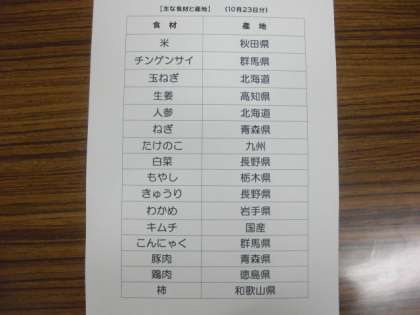 ［主な食材と産地］　（10月23日分）
食　材　産　地
米　秋田県
チンゲンサイ　群馬県
玉ねぎ　北海道
生姜　高知県
人参　北海道
ねぎ　青森県
たけのこ　九州
白菜　長野県
もやし　栃木県
きゅうり　長野県
わかめ　岩手県
キムチ　国産
こんにゃく　群馬県
豚肉　青森県
鶏肉　徳島県
柿　和歌山県